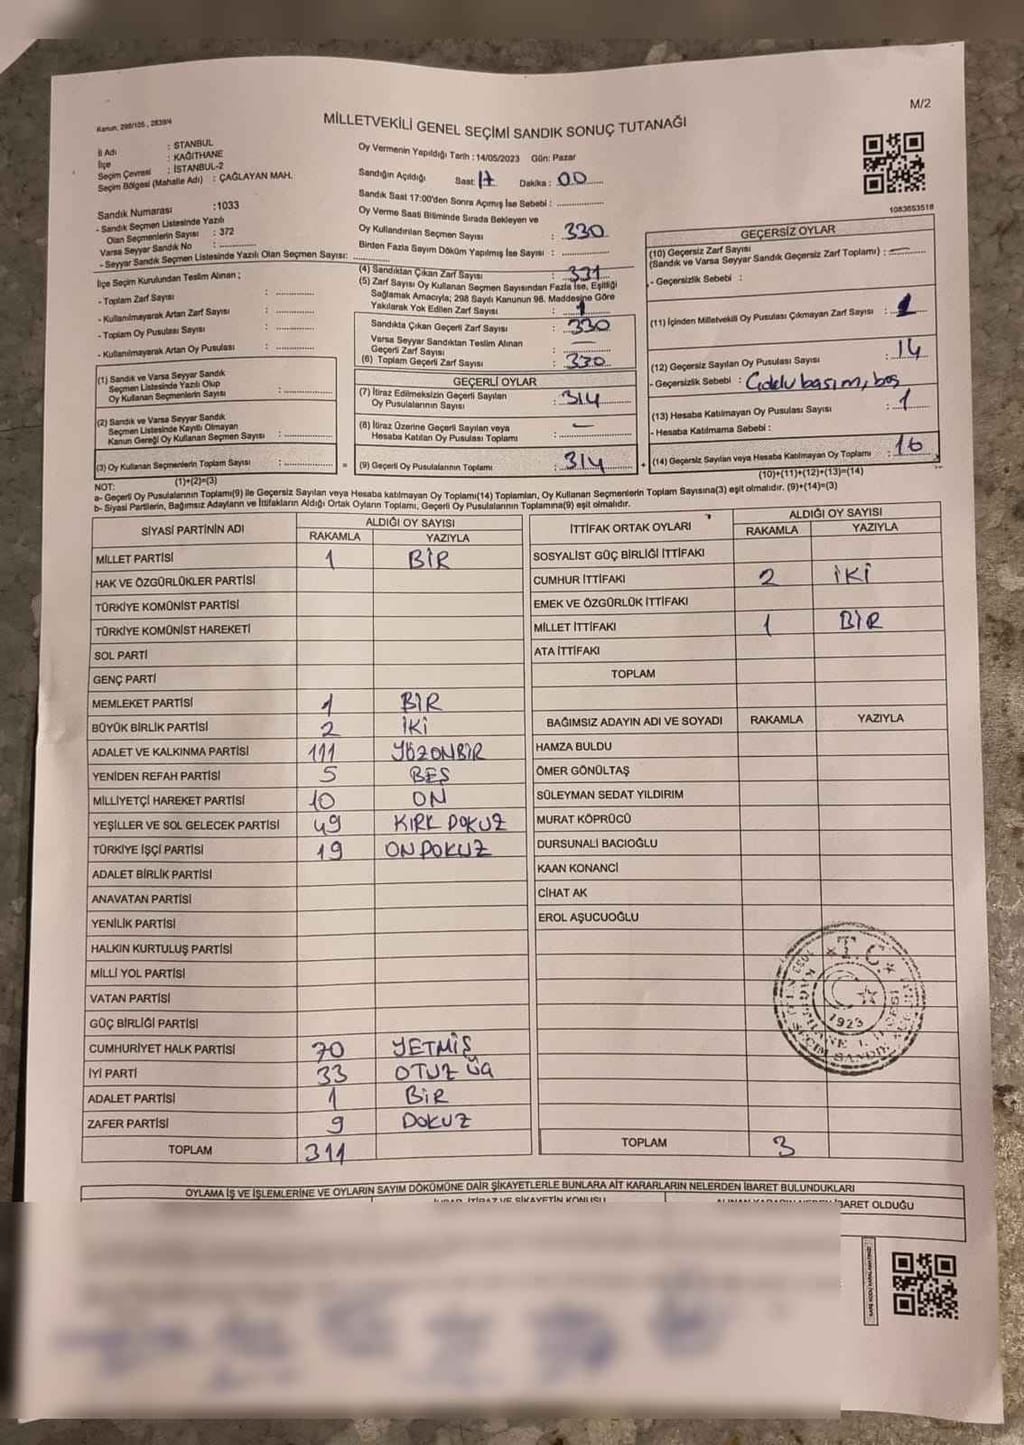 M/2
Kanun, 298/105, 2839/4
MİLLETVEKİLİ GENEL SEÇİMİ SANDIK SONUÇ TUTANAĞI
İl Adı : STANBUL
İlçe : KAĞITHANE
Seçim Çevresi : İSTANBUL-2
Seçim Bölgesi (Mahalle Adı) : ÇAĞLAYAN MAH.
Sandık Numarası : 1033
- Sandık Seçmen Listesinde Yazılı
Olan Seçmenlerin Sayısı : 372
Varsa Seyyar Sandık No :
- Seyyar Sandık Seçmen Listesinde Yazılı Olan Seçmen Sayısı:
İlçe Seçim Kurulundan Teslim Alınan ;
- Toplam Zarf Sayısı :
- Kullanılmayarak Artan Zarf Sayısı :
- Toplam Oy Pusulası Sayısı :
- Kullanılmayarak Artan Oy Pusulası :
(1) Sandık ve Varsa Seyyar Sandık
Seçmen Listesinde Yazılı Olup
Oy Kullanan Seçmenlerin Sayısı :
(2) Sandık ve Varsa Seyyar Sandık
Seçmen Listesinde Kayıtlı Olmayan
Kanun Gereği Oy Kullanan Seçmen Sayısı :
(3) Oy Kullanan Seçmenlerin Toplam Sayısı :
(1)+(2)=(3)
Oy Vermenin Yapıldığı Tarih : 14/05/2023 Gün: Pazar
Sandığın Açıldığı Saat: 17 Dakika : 00
Sandık Saat 17:00'den Sonra Açımış İse Sebebi :
Oy Verme Saati Bitiminde Sırada Bekleyen ve
Oy Kullandırılan Seçmen Sayısı : 330
Birden Fazla Sayım Döküm Yapılmış İse Sayısı :
(4) Sandıktan Çıkan Zarf Sayısı : 331
(5) Zarf Sayısı Oy Kullanan Seçmen Sayısından Fazla İse, Eşitliği
Sağlamak Amacıyla; 298 Sayılı Kanunun 98. Maddesine Göre
Yakılarak Yok Edilen Zarf Sayısı : 1
Sandıkta Çıkan Geçerli Zarf Sayısı : 330
Varsa Seyyar Sandıktan Teslim Alınan
Geçerli Zarf Sayısı : —
(6) Toplam Geçerli Zarf Sayısı : 330
GEÇERLİ OYLAR
(7) İtiraz Edilmeksizin Geçerli Sayılan
Oy Pusulalarının Sayısı : 314
(8) İtiraz Üzerine Geçerli Sayılan veya
Hesaba Katılan Oy Pusulası Toplamı : —
= (9) Geçerli Oy Pusulalarının Toplamı : 314
1083653518
GEÇERSİZ OYLAR
(10) Geçersiz Zarf Sayısı
(Sandık ve Varsa Seyyar Sandık Geçersiz Zarf Toplamı) : —
- Geçersizlik Sebebi :
(11) İçinden Milletvekili Oy Pusulası Çıkmayan Zarf Sayısı : 1
(12) Geçersiz Sayılan Oy Pusulası Sayısı : 14
- Geçersizlik Sebebi : Çoklu basım, boş
(13) Hesaba Katılmayan Oy Pusulası Sayısı : 1
- Hesaba Katılmama Sebebi :
+ (14) Geçersiz Sayılan veya Hesaba Katılmayan Oy Toplamı : 16
(10)+(11)+(12)+(13)=(14)
NOT:
a- Geçerli Oy Pusulalarının Toplamı(9) ile Geçersiz Sayılan veya Hesaba katılmayan Oy Toplamı(14) Toplamları, Oy Kullanan Seçmenlerin Toplam Sayısına(3) eşit olmalıdır. (9)+(14)=(3)
b- Siyasi Partilerin, Bağımsız Adayların ve İttifakların Aldığı Ortak Oyların Toplamı, Geçerli Oy Pusulalarının Toplamına(9) eşit olmalıdır.
SİYASİ PARTİNİN ADI ALDIĞI OY SAYISI
RAKAMLA YAZIYLA
MİLLET PARTİSİ 1 BİR
HAK VE ÖZGÜRLÜKLER PARTİSİ
TÜRKİYE KOMÜNİST PARTİSİ
TÜRKİYE KOMÜNİST HAREKETİ
SOL PARTİ
GENÇ PARTİ
MEMLEKET PARTİSİ 1 BİR
BÜYÜK BİRLİK PARTİSİ 2 İKİ
ADALET VE KALKINMA PARTİSİ 111 YÜZONBİR
YENİDEN REFAH PARTİSİ 5 BEŞ
MİLLİYETÇİ HAREKET PARTİSİ 10 ON
YEŞİLLER VE SOL GELECEK PARTİSİ 49 KIRK DOKUZ
TÜRKİYE İŞÇİ PARTİSİ 19 ON DOKUZ
ADALET BİRLİK PARTİSİ
ANAVATAN PARTİSİ
YENİLİK PARTİSİ
HALKIN KURTULUŞ PARTİSİ
MİLLİ YOL PARTİSİ
VATAN PARTİSİ
GÜÇ BİRLİĞİ PARTİSİ
CUMHURİYET HALK PARTİSİ 70 YETMİŞ
İYİ PARTİ 33 OTUZ ÜÇ
ADALET PARTİSİ 1 BİR
ZAFER PARTİSİ 9 DOKUZ
TOPLAM 311
İTTİFAK ORTAK OYLARI ALDIĞI OY SAYISI
RAKAMLA YAZIYLA
SOSYALİST GÜÇ BİRLİĞİ İTTİFAKI
CUMHUR İTTİFAKI 2 İKİ
EMEK VE ÖZGÜRLÜK İTTİFAKI
MİLLET İTTİFAKI 1 BİR
ATA İTTİFAKI
TOPLAM
BAĞIMSIZ ADAYIN ADI VE SOYADI RAKAMLA YAZIYLA
HAMZA BULDU
ÖMER GÖNÜLTAŞ
SÜLEYMAN SEDAT YILDIRIM
MURAT KÖPRÜCÜ
DURSUNALİ BACIOĞLU
KAAN KONANCİ
CİHAT AK
EROL AŞUCUOĞLU
T.C.
1923
TOPLAM 3
OYLAMA İŞ VE İŞLEMLERİNE VE OYLARIN SAYIM DÖKÜMÜNE DAİR ŞİKAYETLERLE BUNLARA AİT KARARLARIN NELERDEN İBARET BULUNDUKLARI
İTİRAZ VE ŞİKAYETİN KONUSU
İBARET OLDUĞU